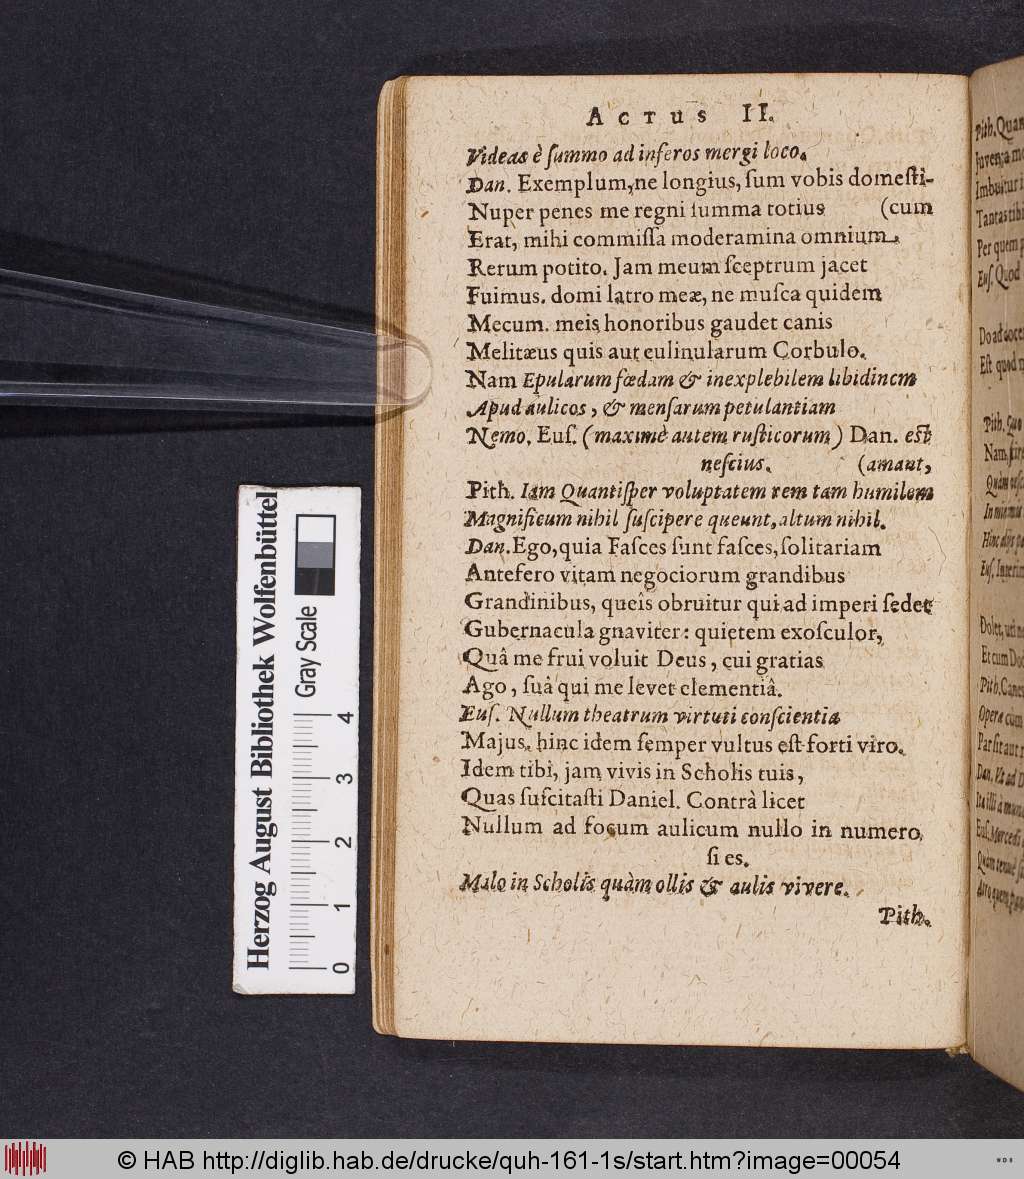 ACTUS II.
Videas è ſummo ad inferos mergi loco.
Dan. Exemplum, ne longius, ſum vobis domeſti-
Nuper penes me regni ſumma totius (cum
Erat, mihi commiſſa moderamina omnium.
Rerum potito. Jam meum ſceptrum jacet
Fuimus. domi latro meæ, ne muſca quidem
Mecum. meis honoribus gaudet canis
Melitæus quis aut culinularum Corbulo.
Nam Epularum fœdam & inexplebilem libidinem
Apud aulicos, & menſarum petulantiam
Nemo. Euſ. (maximè autem ruſticorum) Dan. eſt
neſcius. (amant,
Pith. Iam Quantiſper voluptatem rem tam humilem
Magnificum nihil ſuſcipere queunt, altum nihil.
Dan. Ego, quia Faſces ſunt faſces, ſolitariam
Antefero vitam negociorum grandibus
Grandinibus, queîs obruitur qui ad imperî ſedet
Gubernacula gnaviter: quietem exoſculor,
Quâ me frui voluit Deus, cui gratias
Ago, ſuâ qui me levet clementiâ.
Euſ. Nullum theatrum virtuti conſcientia
Majus. hinc idem ſemper vultus eſt forti viro.
Idem tibi, jam vivis in Scholis tuis,
Quas ſuſcitaſti Daniel. Contrà licet
Nullum ad focum aulicum nullo in numero
ſi es.
Malo in Scholis quàm ollis & aulis vivere.
Pith.
Pith. Quan
Imbuitur i
Tantas tibi
Per quem p
Euſ. Quod
Do ad docen
Eſt quod n
Pith. Quo
Et cum Do
Pith. Canes
Opera cùm
Herzog August Bibliothek Wolfenbüttel
Gray Scale
0 1 2 3 4
© HAB http://diglib.hab.de/drucke/quh-161-1s/start.htm?image=00054